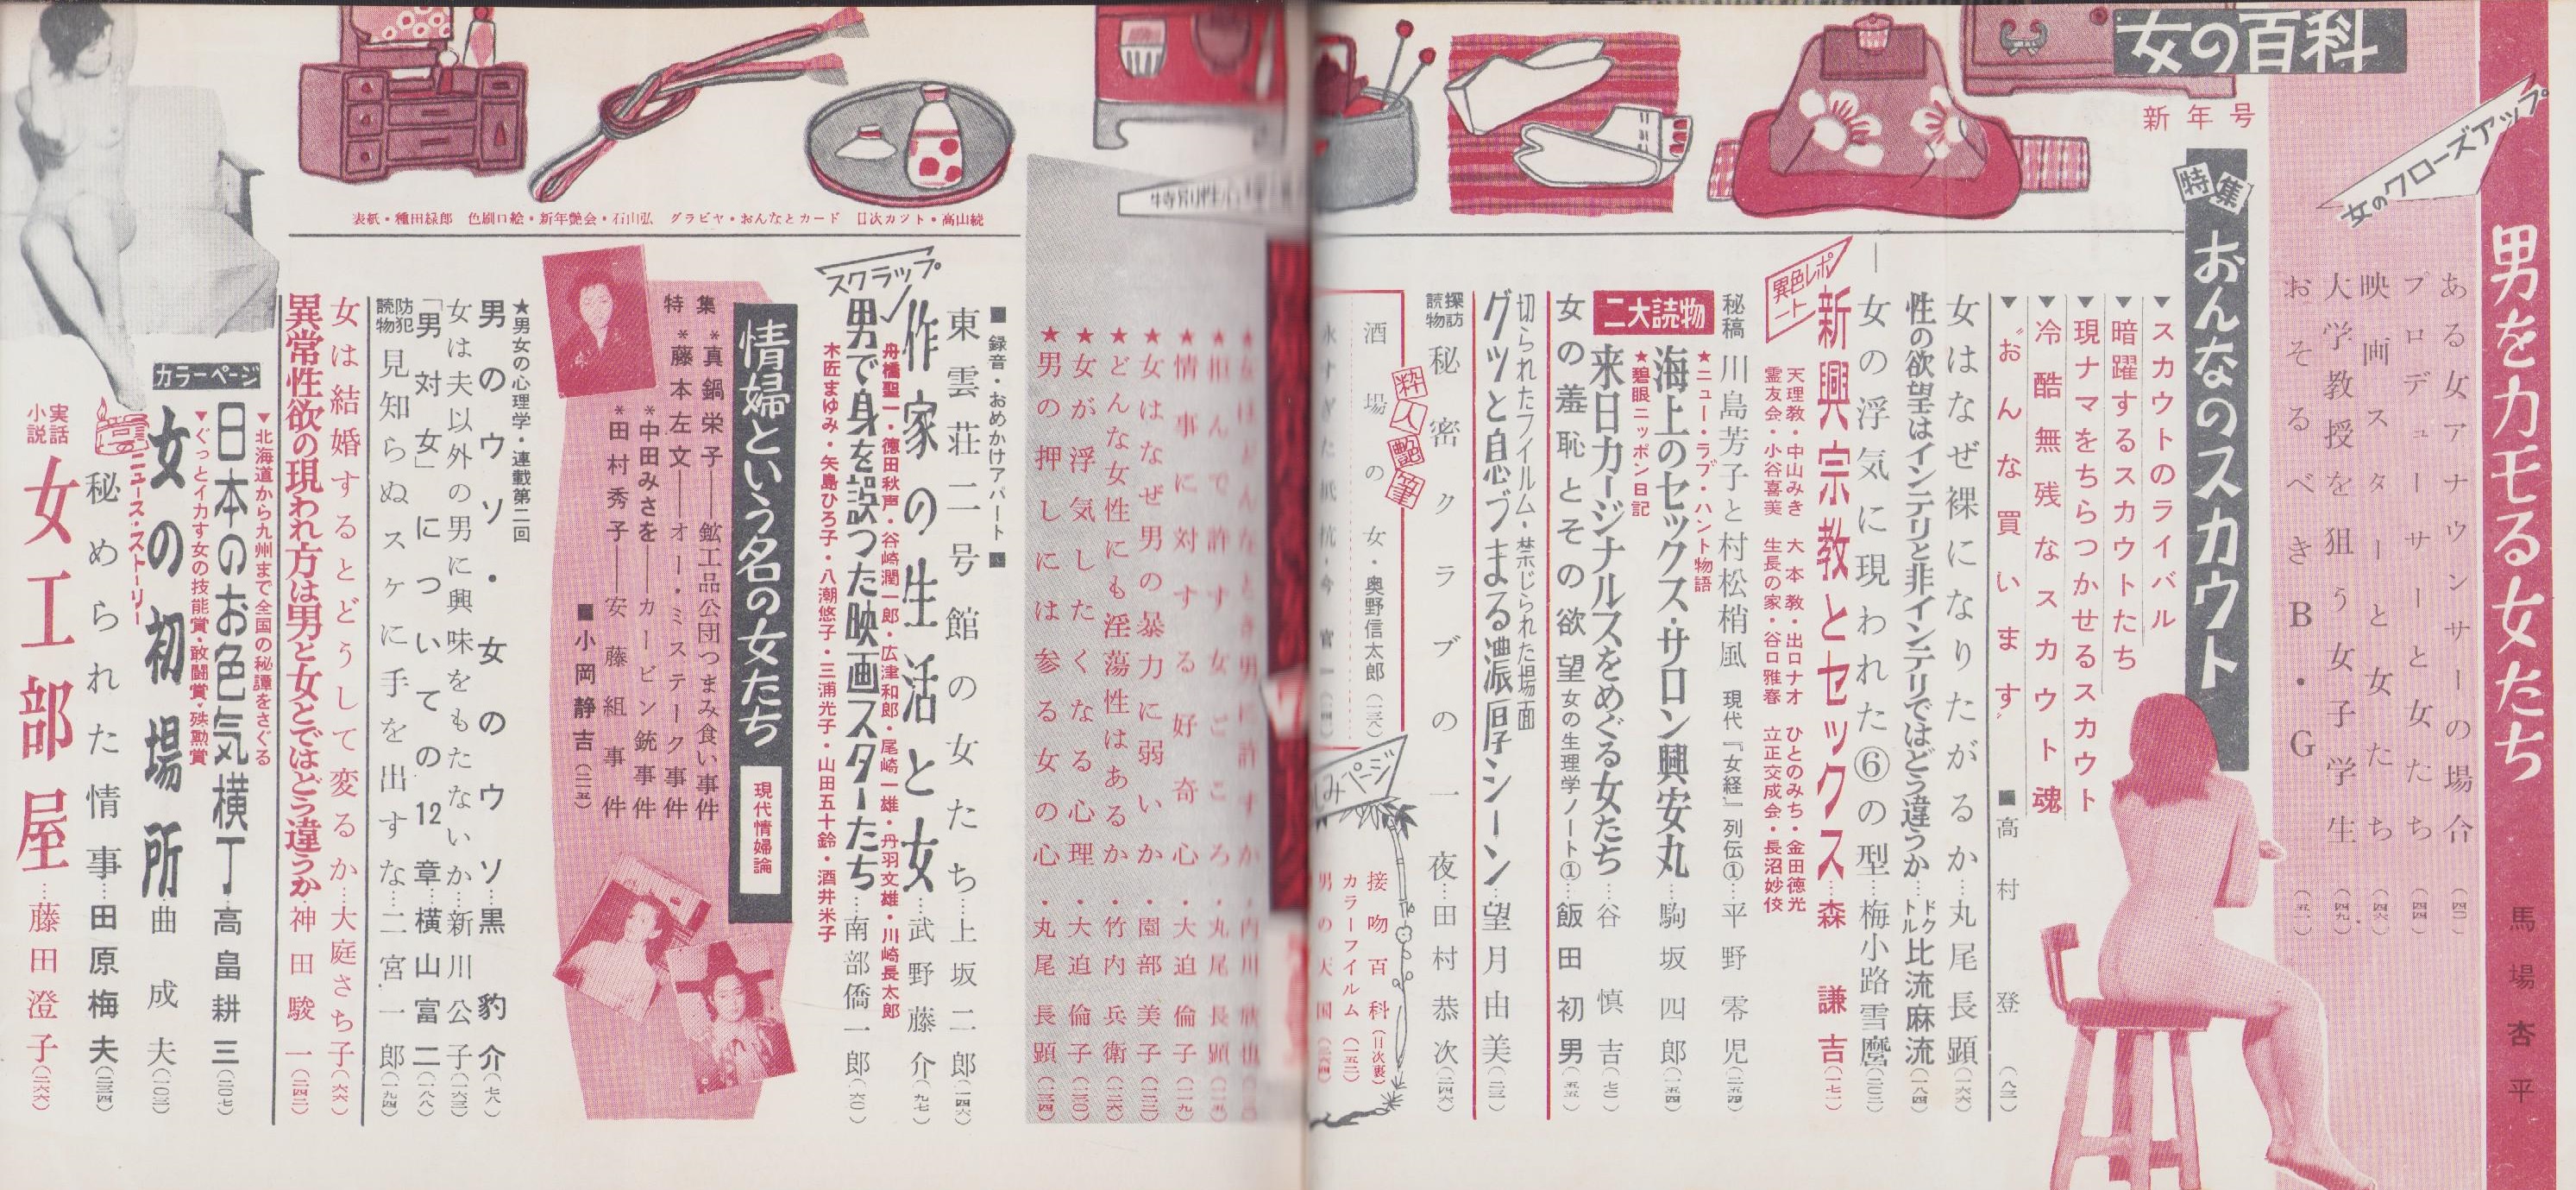 女の百科
新年号
女のクローズアップ
男をカモる女たち
馬場杏平
ある女アナウンサーの場合
プロデューサーと女たち
映画スターと女たち
大学教授を狙う女子学生
おそるべきB・G
特集
おんなのスカウト
▼スカウトのライバル
▼暗躍するスカウトたち
▼現ナマをちらつかせるスカウト
▼冷酷無残なスカウト魂
▼〝おんな買います〟
■高村登(八二)
女はなぜ裸になりたがるか…丸尾長顕(一六六)
性の欲望はインテリと非インテリではどう違うか…ドクトル比流麻流(一八四)
女の浮気に現われた⑥の型…梅小路雪麿(二〇二)
異色レポート
新興宗教とセックス…森謙吉(一七二)
天理教・中山みき 大本教・出口ナオ ひとのみち・金田徳光
霊友会・小谷喜美 生長の家・谷口雅春 立正交成会・長沼妙佼
秘稿 川島芳子と村松梢風 現代『女経』列伝①…平野零児(二五四)
二大読物
★ニュー・ラブ・ハント物語
海上のセックス・サロン興安丸…駒坂四郎(一五四)
★碧眼ニッポン日記
来日カージナルスをめぐる女たち…谷慎吉(七二)
女の羞恥とその欲望 女の生理学ノート①…飯田初男(五五)
切られたフイルム・禁じられた場面
グッと息づまる濃厚シーン…望月由美(二三二)
探訪読物 秘密クラブの一夜…田村恭次(二四六)
粋人艶筆
酒場の女・奥野信太郎(一三八)
しみページ
接吻百科(目次裏)
カラーフイルム(一五二)
男の天国
特別
内川欣也
拒んで許す女ごころ・丸尾長顕
★情事に対する好奇心・大迫倫子(二一九)
★女はなぜ男の暴力に弱いか・園部美子(二二二)
★どんな女性にも淫蕩性はあるか・竹内兵衛(二二六)
★女が浮気したくなる心理・大迫倫子(二三〇)
★男の押しには参る女の心・丸尾長顕(二三四)
表紙・種田緑郎 色刷口絵・新年艶会・石山弘 グラビヤ・おんなとカード 目次カット・高山続
■録音・おめかけアパート■
東雲荘二号館の女たち…上坂二郎(一四六)
スクラップ
作家の生活と女…武野藤介(九七)
舟橋聖一・徳田秋声・谷崎潤一郎・広津和郎・尾崎一雄・丹羽文雄・川崎長太郎
男で身を誤った映画スターたち…南部僑一郎(六〇)
木匠まゆみ・矢島ひろ子・八潮悠子・三浦光子・山田五十鈴・酒井米子
情婦という名の女たち
現代情婦論
特集
*真鍋栄子――鉱工品公団つまみ食い事件
*藤本左文――オー・ミステーク事件
*中田みさを――カービン銃事件
*田村秀子――安藤組事件
■小岡静吉(二一五)
★男女の心理学・連載第二回
男のウソ・女のウソ…黒豹介(七八)
女は夫以外の男に興味をもたないか…新川公子(一六三)
「男対女」についての12章…横山富二(一八八)
防犯読物 見知らぬスケに手を出すな…二宮一郎(一九四)
女は結婚するとどうして変るか…大庭さち子(六六)
異常性欲の現われ方は男と女とではどう違うか…神田駿一(二四二)
カラーページ
▼北海道から九州まで全国の秘譚をさぐる
日本のお色気横丁…高畠耕三(二〇七)
▼ぐっとイカす女の技能賞・敢闘賞・殊勲賞
女の初場所…曲成夫(一〇三)
ニュース・ストーリー
秘められた情事…田原梅夫(二三四)
実話小説
女工部屋…藤田澄子(二六六)